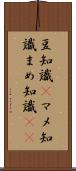 豆知識《《マメ知
識まめ知識《《